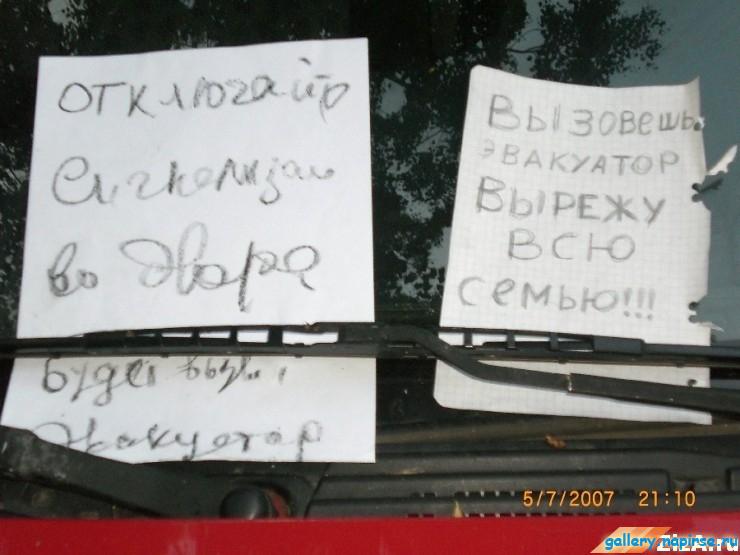 отключайте
сигнализаци
во дворе
будет вызван
эвакуатор
Вызовешь
эвакуатор
вырежу
всю
семью!!!
5/7/2007 21:10
gallery.napirse.ru